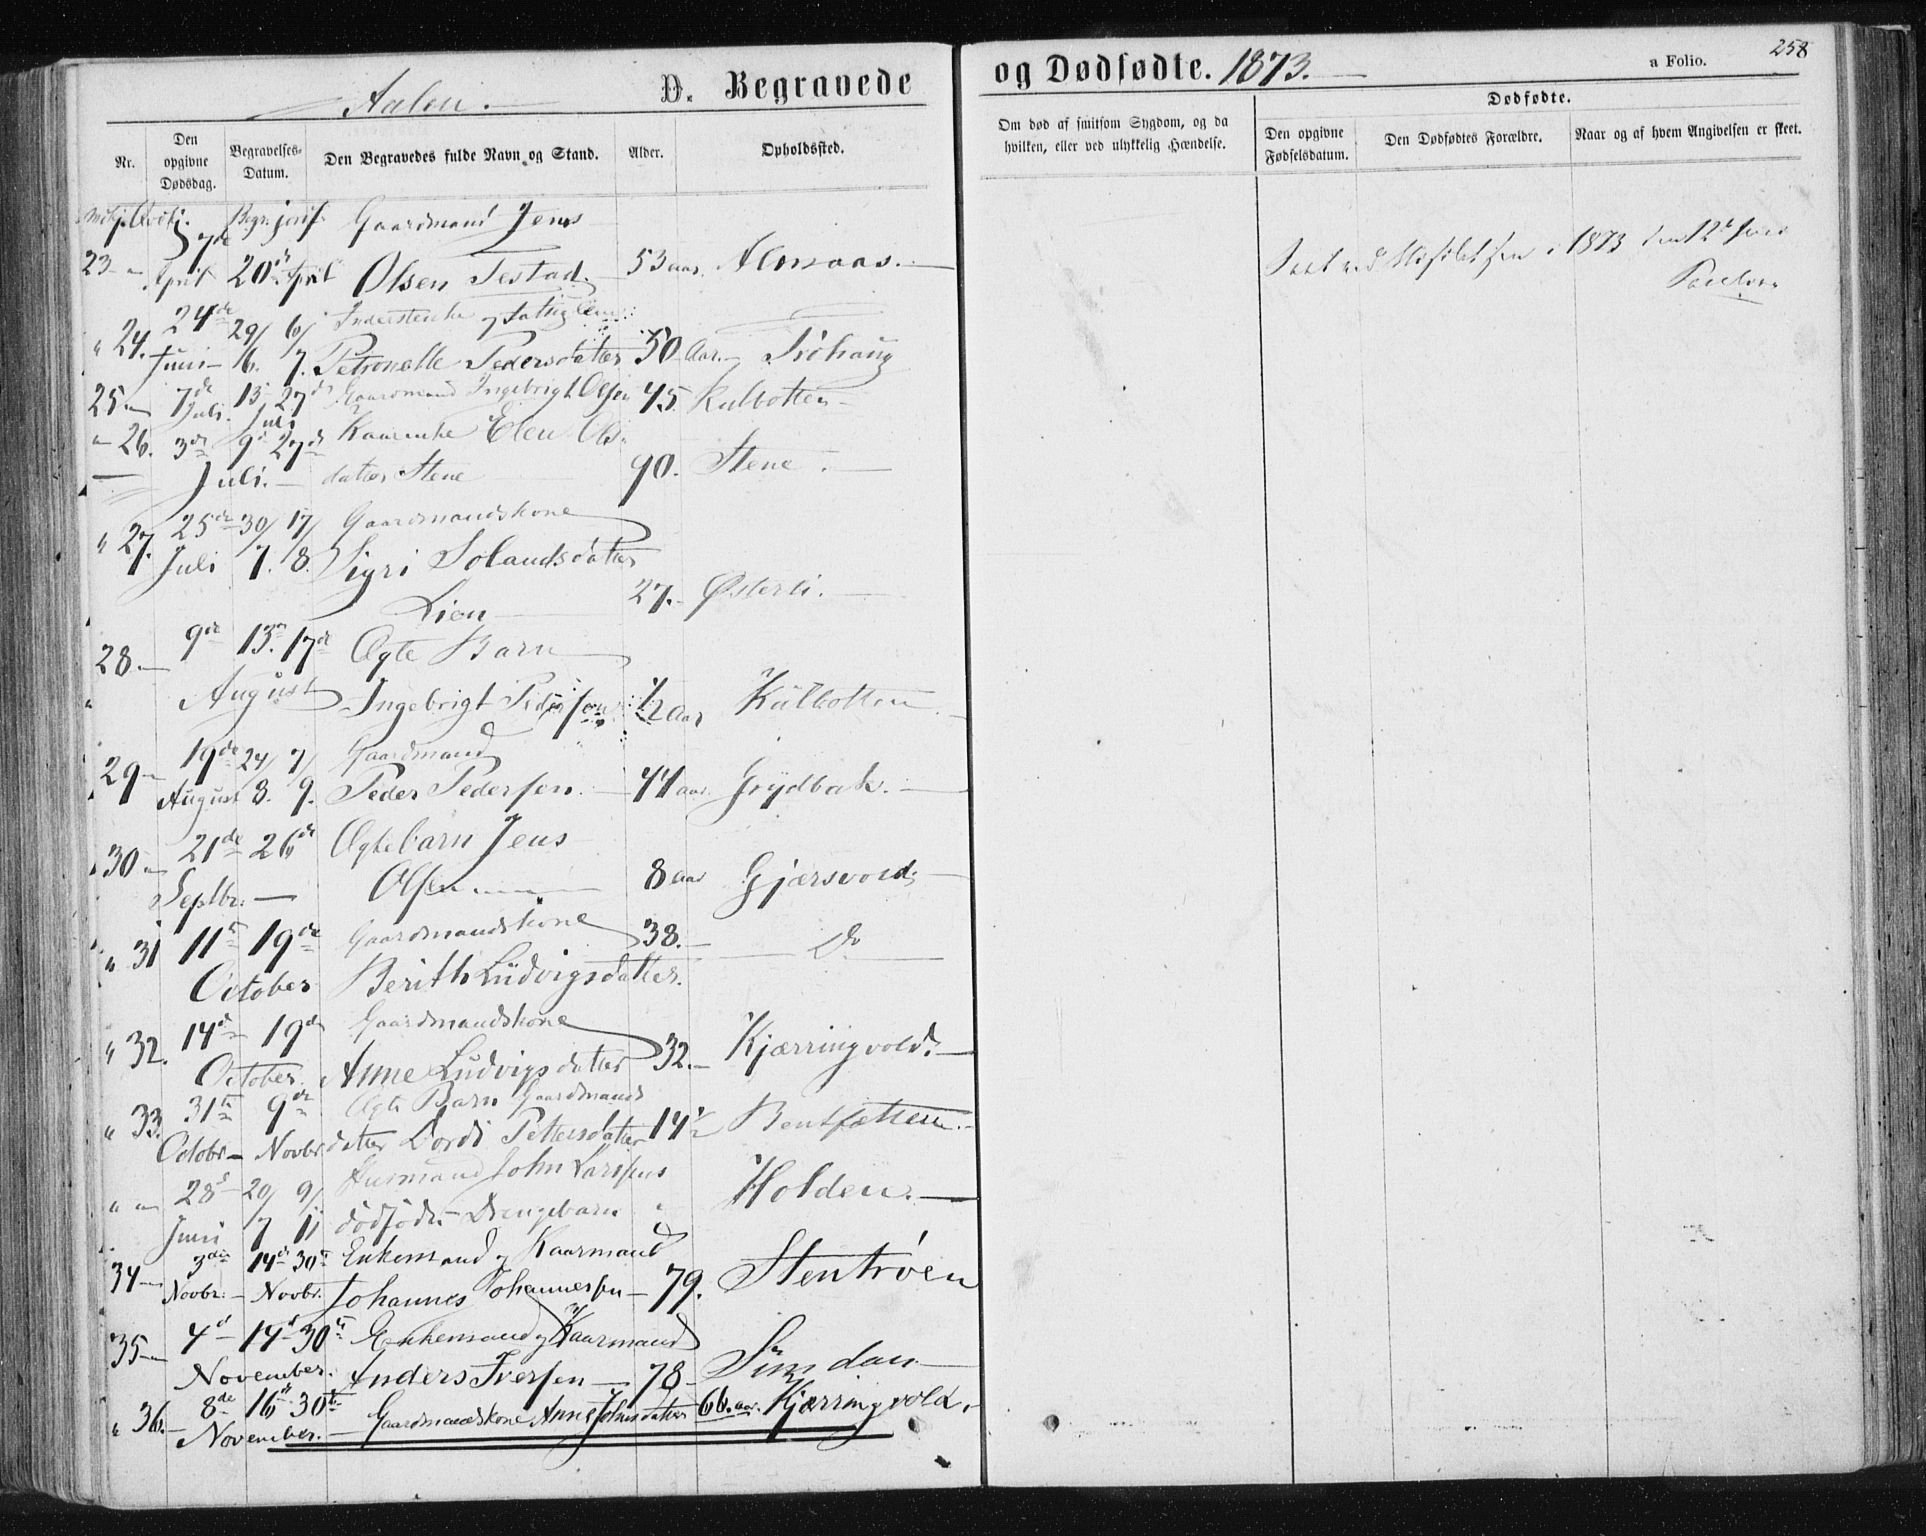 Aalen. D. Begravede
og Dødfødte. 1873. a Folio. 258
Nr. Den opgivne Dødsdag. Begravelses-Datum. Den Begravedes fulde Navn og Stand. Alder. Opholdssted.
Om død af smitsom Sygdom, og da hvilken, eller ved ulykkelig Hændelse.
Dødfødte.
Den opgivne Fødselsdatum. Den Dødfødtes Forældre. Naar og af hvem Angivelsen er skeet.
7de Gaardmand Jens
23 April 20de April Olsen Testad 53 aar. Almaas.
24de 29/ 6/
24. Juni 6. 7. Petronelle Pedersdatter 50 Aar. Trøhaug
25 7de Juli. 13 27de Juli Gaardmand Ingebrigt Olsen 45. Kulbotten
26. 3de 9d 27d Kaarenke Elen Ols-
Juli. datter Stene 90. Stene.
25de 30/ 17/ Gaardmandskone
27. Juli 7. 8. Sigri Solandsdatter
Lien 27. Østerli.
28. 9de 13. 17de Ægte Barn
August Ingebrigt Pedersen 1/2 Aar Kulbotten
19de 24/ 7/ Gaardmand
29 August 8. 9. Peder Pedersen. 44 aar. Grydbak.
30 21de 26de Ægtebarn Jens
Septbr: Olsen 8 aar Gjærsvold
31 11te 19de Gaardmandskone 38. Do
October Berith Ludvigsdatter.
32. 14d 19de Gaardmandskone
October. Anne Ludvigsdatter 32. Kjærringvold.
33. 31te 9de Ægte Barn Gaardmands
Octobr Novbr datter Dordi Pettersdatter 14 1/2 Bentsætten.
28d 20/ 9/ Husmand John Larsens
Juni 7 11 dødfødte Drengebarn Holden.
3die 14de 30te Enkemand og Kaarmand
34 Novbr: Novbr. Johannes Johannessen 79. Stentrøen
35 4d 14d 30te Enkemand og Kaarmand
November. Anders Iversen 78
36. 8de 16de 30te Gaardmandskone Anne Johnsdatter 66. aar. Kjærringvold.
November.